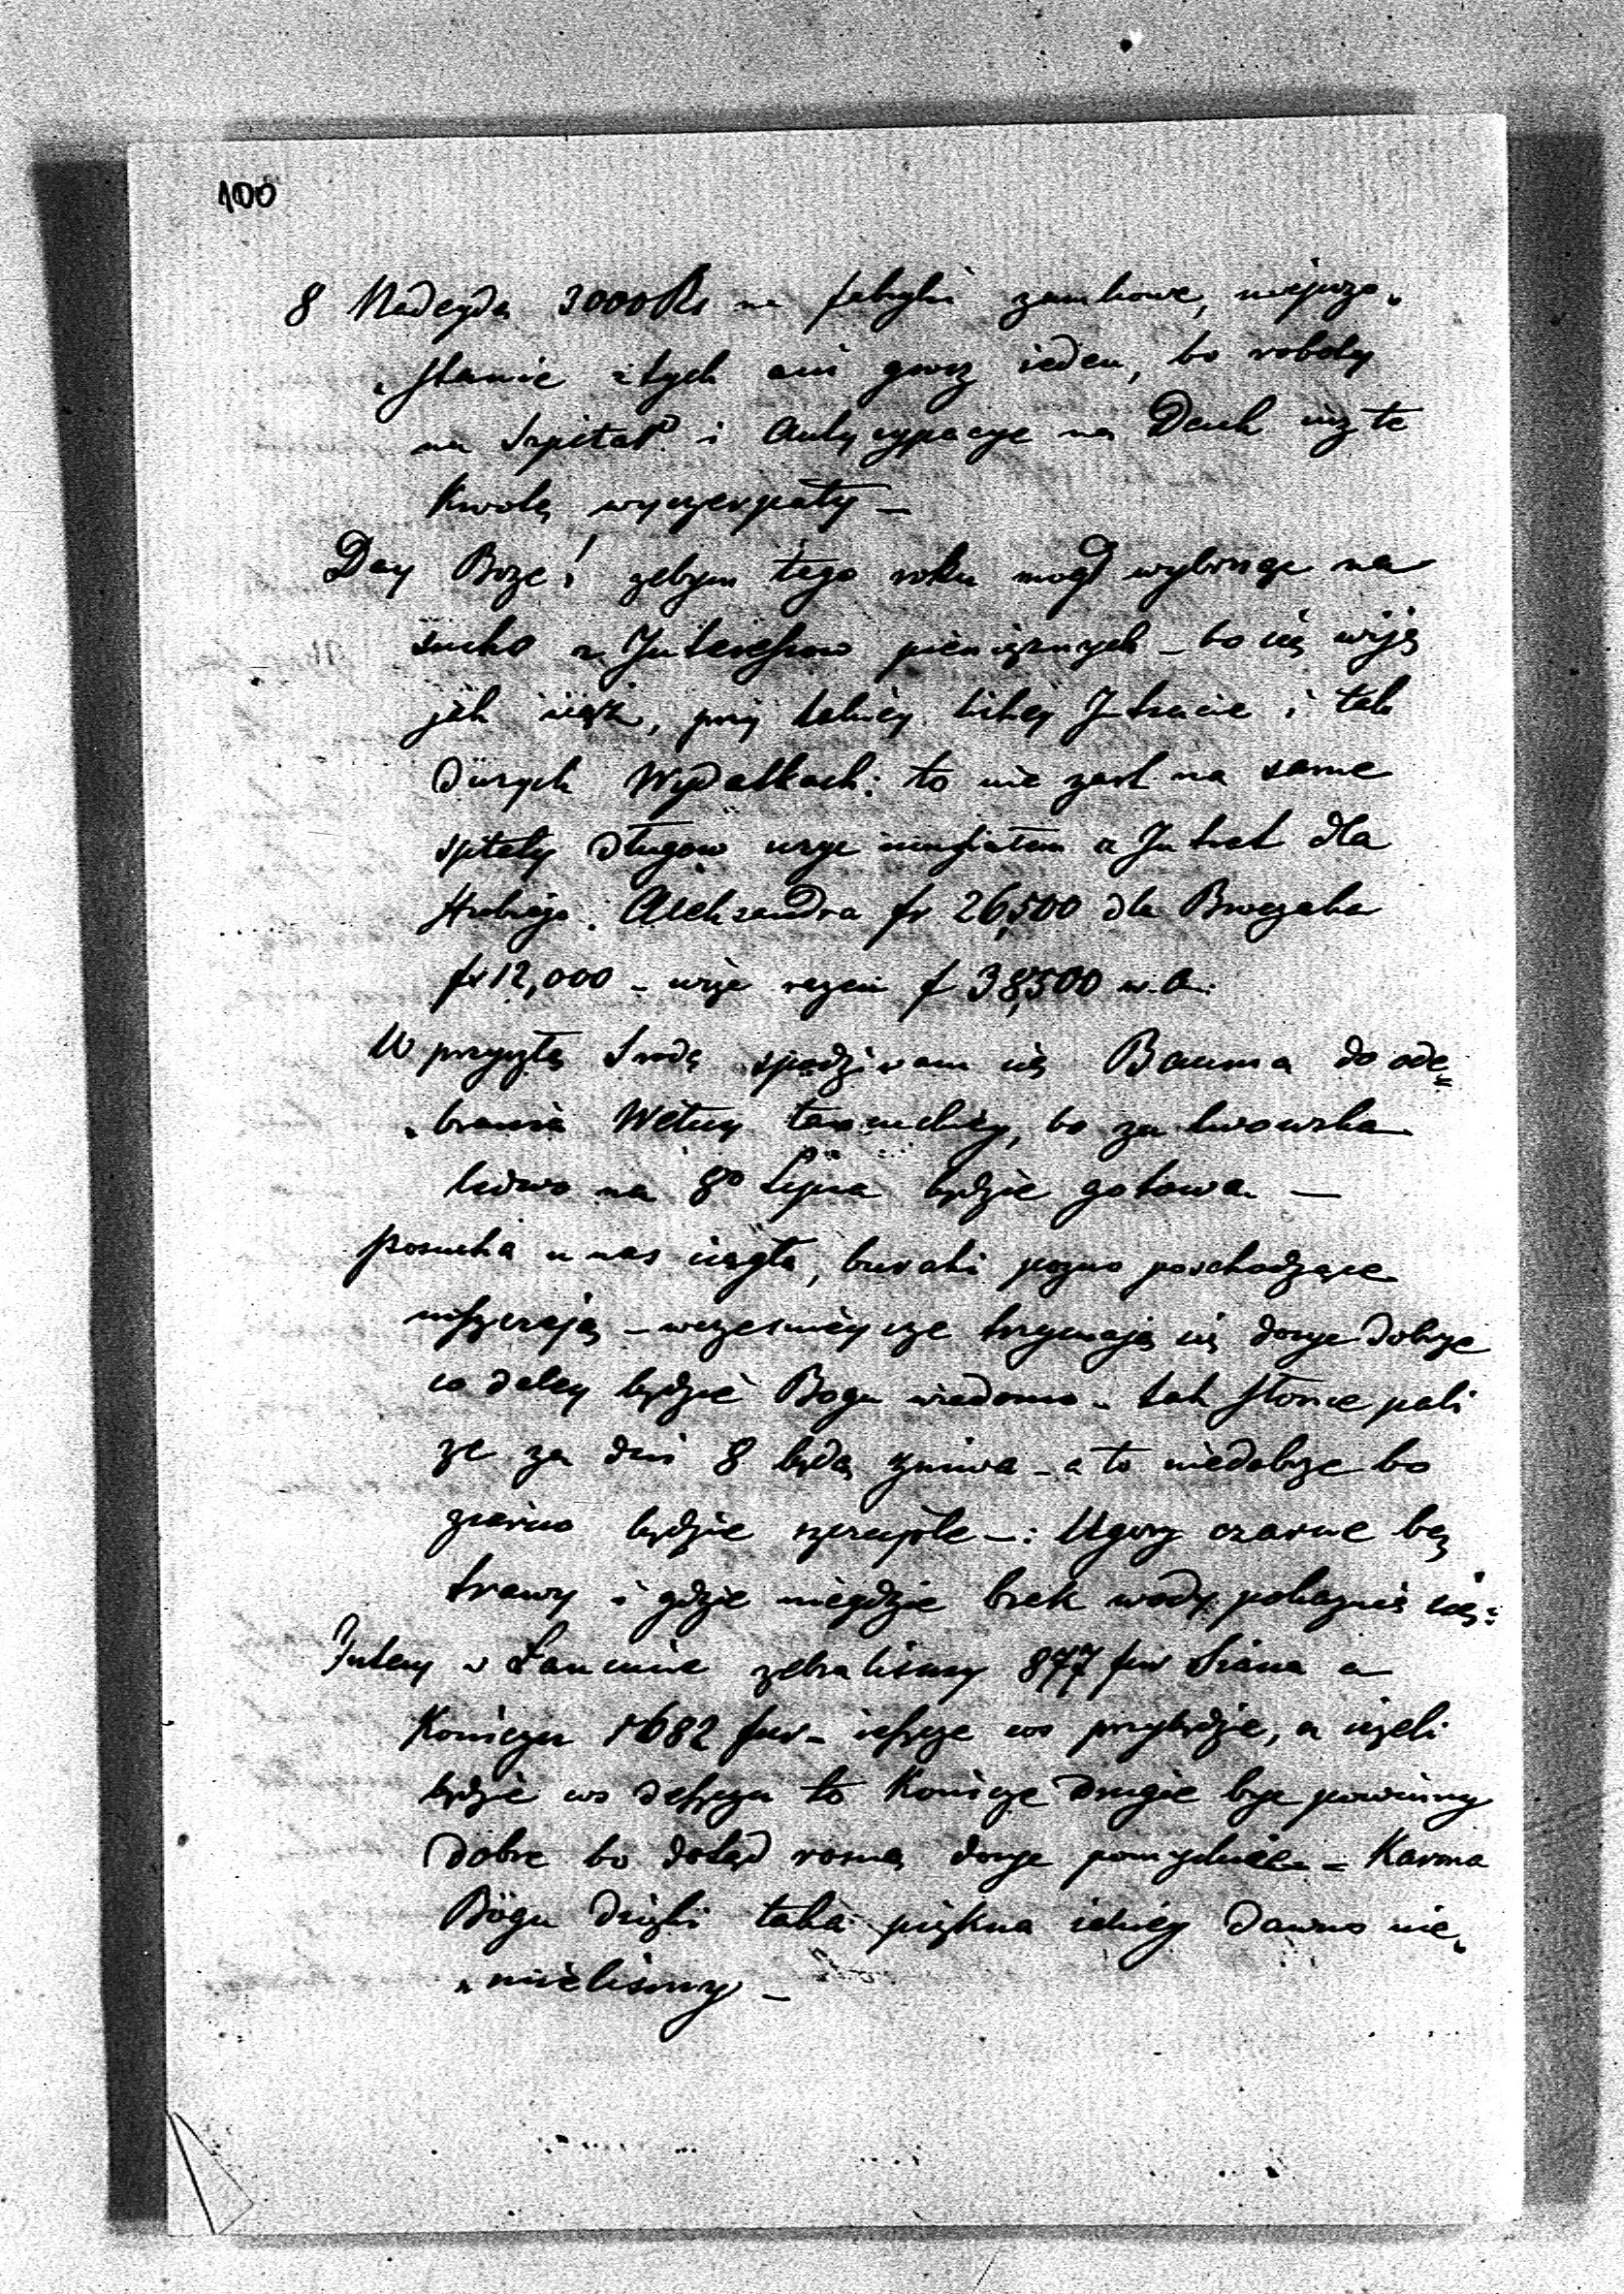 100
8 Nadeyda 3000 Rs na fabryki zamkowe, niepozo„
„stanie z tych ani grosz ieden, bo roboty
na Szpital i Antycypacye na Dach iuz te
Kwotę wyczerpały –
Day Boze! zebym tego roku mogł wybrnąc na
sucho z Interessow pieniężnych – bo się wiję
jak wąz, przy takiey lichey Intracie i tak
duzych Wydatkach: to nie zart na same
spłaty długow iuze z Intrat dla
Hrabiego Aleksandra fr 26,500 dla Broczaka
fr 12,000 – więc razem f 38,500 w. a.
W przyszłą Srodę spodziwam się Bauma do ode„
„brania Wełny tanuckiey, bo za lwowska
ledwo na 8º Lipca będzie gotowa. —
Posucha u nas ciągła, buraki pozno poschodzące
niszczeją – wczesnieysze trzymają się dosyc dobrze
co daley będzie Bogu wiadomo – tak słonce pali
ze za dni 8 będą zniwa – a to niedobrze bo
ziarno będzie szczupłe –: Ugory czarne bez
trawy i gdzie niegdzie brak wody pokazuie się:
w Łancucie zebralismy 877 fur Siana a
Koniczu 1682 fur – ieszcze co przybędzie, a iezeli
będzie co deszczu to Konicze drugie byc powinny
dobre bo dotąd rosną dosyc pomyslnie – Karma
Bogu dzięki taka piękna iakiey dawno nie„
„mielismy –